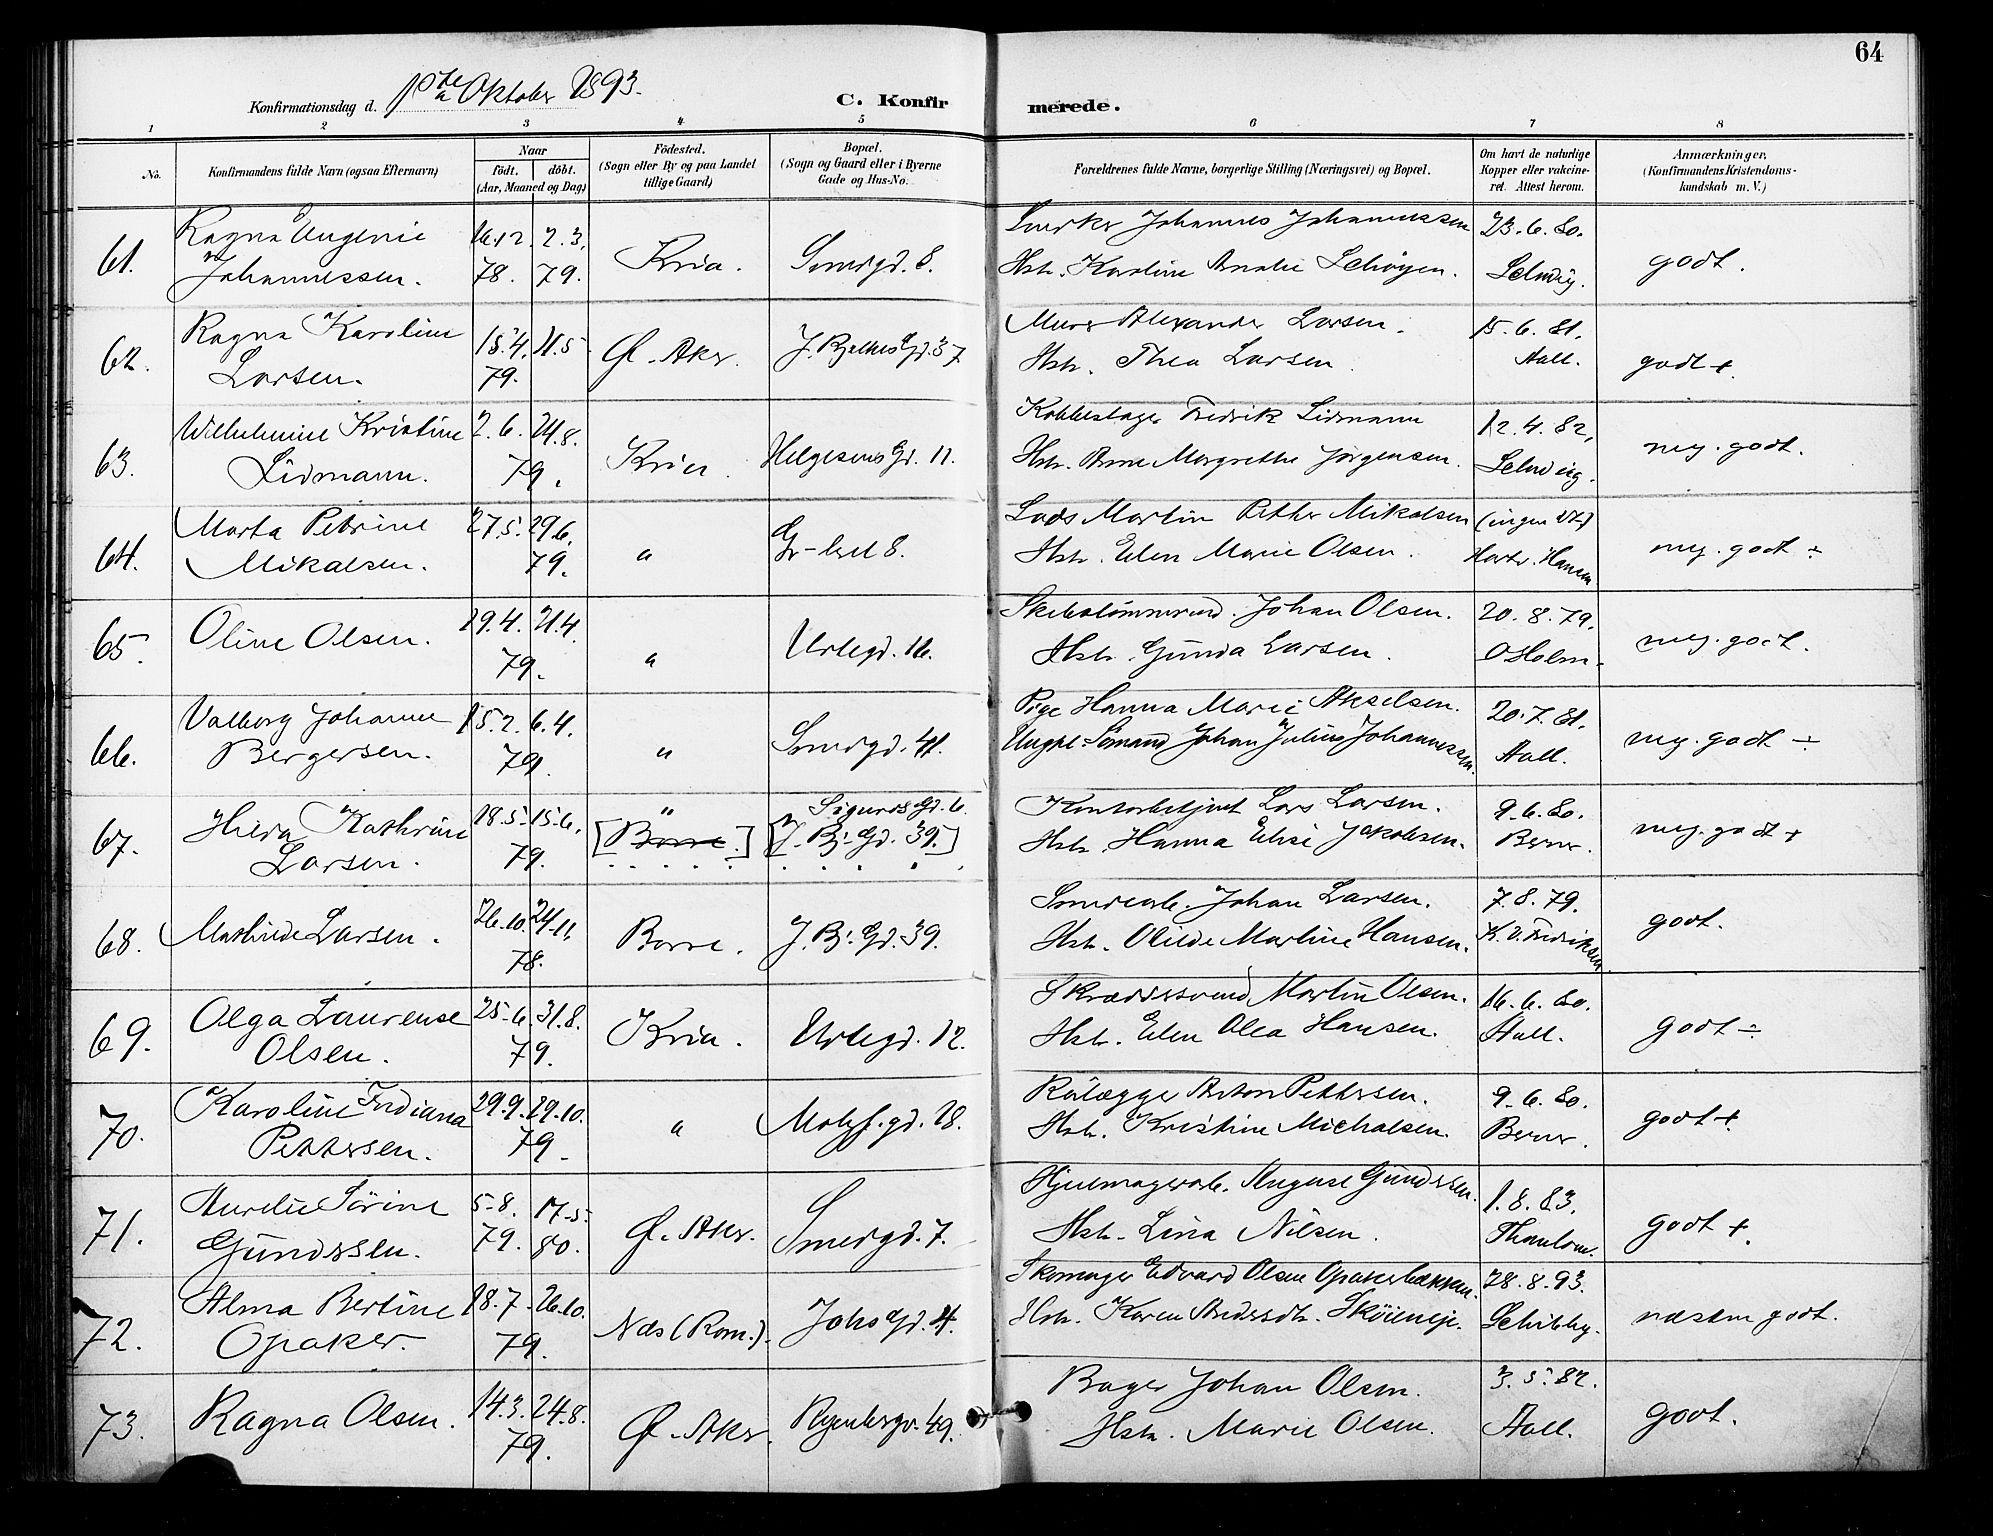 64
Konfirmationsdag d. 1ste Oktober 1893.
C. Konfirmerede.
1 2 3 4 5 6 7 8
No. Konfirmandens fulde Navn (ogsaa Efternavn) Naar født. døbt. (Aar, Maaned og Dag) Födested. (Sogn eller By og paa Landet tillige Gaard) Bopæl. (Sogn og Gaard eller i Byerne Gade og Hus-No. Forældrenes fulde Navne, borgerlige Stilling (Næringsvei) og Bopæl. Om havt de naturlige Kopper eller vaccineret. Attest herom. Anmærkninger. (Konfirmandens Kristendomskundskab m. V.)
61. Ragna Eugenie 16.12. 2.3. Kria. Smedgd. 8. Snedker Johannes Johannessen 23.6.80. godt.
Johannessen. 78. 79. Hstr. Karoline Amalie Schøyen.
62. Ragna Karoline 15.4. 11.5. Ø. Aker. J. Bjelkes Gd. 37 Murer Alexander Larsen. 15.6.81. godt +.
Larsen. 79. Hstr. Thea Larsen. Aall.
63. Wilhelmine Kristine 2.6. 24.8. Kria. Helgesens Gd. 11. Fredrik Lidmann 12.4.82. meg. godt.
Lidmann. 79. Hstr. Anne Margrethe Jørgensen.
64. Marta Petrine 27.5. 29.6. " 8. Lods Martin Petter Mikalsen (ingen meg. godt ÷
Mikalsen. 79. Hstr. Elen Marie Olsen. Hansen
65. Oline Olsen. 19.4. 21.4. " Urtegd. 16. Skibstømmermd. Johan Olsen. 20.8.79. meg. godt.
79. Hstr. Gunda Larsen. O Holm.
66. Valborg Johanne 15.2. 6.4. " Smedgd. 41. Pige Hanna Marie Akselsen. 20.7.81. meg. godt ÷
Bergersen. 79. Ungkl. Sømand Johan Julius Johannessen. Aall.
67. Hilda Kathrine 18.5. 15.6. " [Borre.] Sigurds Gd. 6. [J. Bj. Gd. 39.] Kontorbetjent Lars Larsen. 9.6.80. meg. godt +
Larsen. 79. Hstr. Hanna Elise Jakobsen. Berner.
68. Mathilde Larsen. 26.10. 24.11. Borre. J. Bj. Gd. 39. Smedearb. Johan Larsen. 7.8.79. godt.
78. Hstr. Olilde Martine Hansen. K. V. Fredriksen
69. Olga Laurense 25.6. 31.8. Kria. Urtegd. 12. Skræddersvend Martin Olsen. 16.6.80. godt ÷
Olsen. 79. Hstr. Elen Olea Hansen. Aall.
70. Karoline Indiana 29.9. 29.10. " 28. Rørlægger Anton Pettersen. 9.6.80. godt +.
Pettersen. 79. Hstr. Kristine Michalsen. Berner.
71. Aurelie Sørine 5.8. 17.5. Ø. Aker. Smedgd. 7. Hjulmagerarb. August Gundersen. 1.8.83. godt +.
Gundersen. 79. 80. Hstr. Lina Nilsen. Thaulow.
72. Alma Bertine 18.7. 26.10. Næs (Rom.). Johs Gd. 4. Skomager Edvard Olsen Opakerbakken. 28.8.93. næsten godt.
Opaker. 79. Hstr. Karen Andersdtr. Schibby.
73. Ragna Olsen. 14.3. 24.8. Ø. Aker. 49. Bager Johan Olsen. 3.5.82. godt.
79. Hstr. Marie Olsen. Aall.